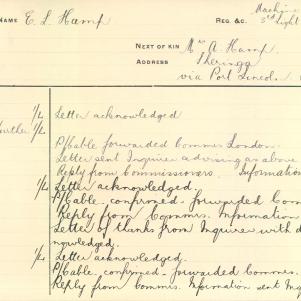 Machine
NAME E. L. Hamp REG. &c. 3rd Light
NEXT OF KIN Mrs A. Hamp
ADDRESS Sheringa
via Port Lincoln
1/4 Letter acknowledged
Further 1/4
P/Cable forwarded Commrs London.
Letter sent Inquirer advising as above
Reply from Commissioners. Information
1/4 Letter acknowledged.
P/Cable - confirmed - forwarded Com
Reply from Commrs. Information
Letter of thanks from Inquirer with d
nowledged.
1/4 Letter acknowledged.
P/Cable. confirmed - forwarded Commrs.
Reply from Commrs. Information sent Inq